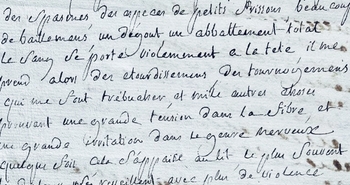 des spasmes des especes de petits frissons beaucoup
de baillemens un dégout un abbattement total
le sang se porte violemment a la tete il me
prend alors des etourdissemens des tournoiemens
qui me font trebucher et mille autres choses
prouvant une grande tension dans la fibre et
une grande irritation dans le genre nerveux
quelque fois cela s'appaise au lit le plus souvent
reveillent avec plus de violence